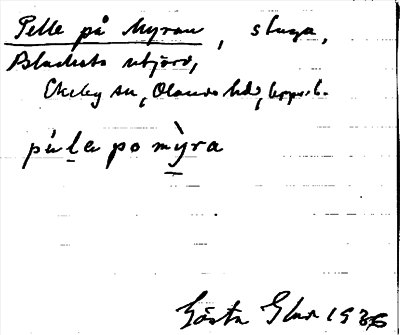 Pelle på Myran, stuga,
Blacksta utjord,
Ekeby sn, Olands hd, Uppsl.
pèle po mỳra
Gösta 1936